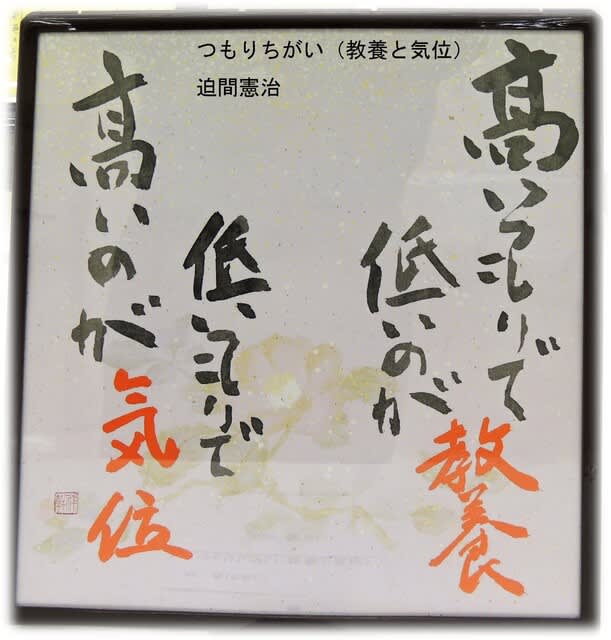 つもりちがい（教養と気位）
迫間憲治
高いつもりで
低いのが
教養
低いつもりで
高いのが
気位